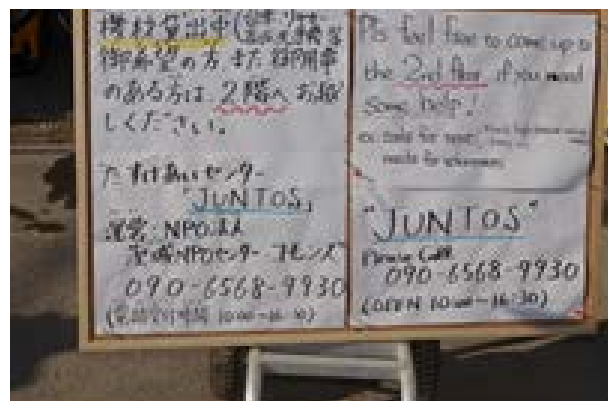 機材貸出中
御希望の方、また御用事
のある方は、2階へお越
しください。
たすけあいセンター
"JUNTOS"
運営:NPO法人
茨城NPOセンターコモンズ
090-6568-9930
(電話受付時間 10:00〜16:30)
Pls feel free to come up to
the 2nd floor if you need
some help!
ex. tools for rent
needs for volunteers
"JUNTOS"
Please Call
090-6568-9930
(OPEN 10:00〜16:30)